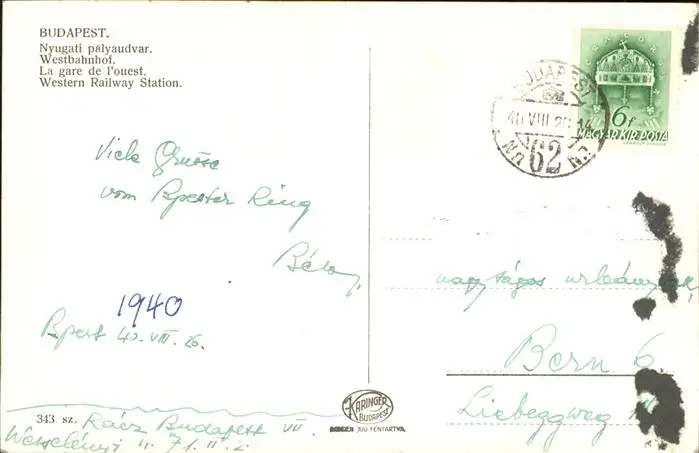 BUDAPEST.
Nyugati pályaudvar.
Westbahnhof.
La gare de l'ouest.
Western Railway Station.
BUDAPEST
40 VIII 26 14
62
6f
MAGYAR KIR. POSTA
Viele Grüsse
vom Bpester Ring
1940
Bpest 40. VIII. 26.
nagyságos urleánynak,
Bern 6.
Liebeggweg
KARINGER
BUDAPEST
MINDEN JOG FENTARTVA.
343. sz.
Rácz Budapest VII.
Wesselényi u. 71. II. 2.